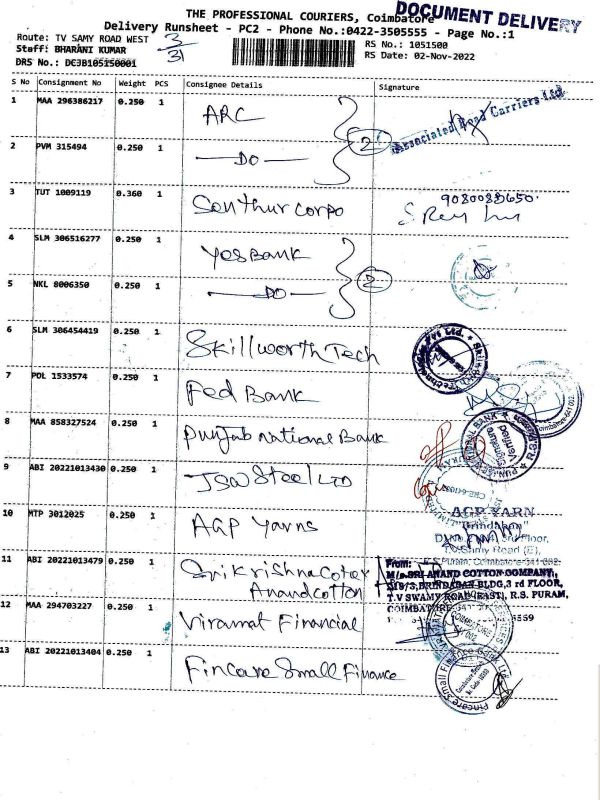 THE PROFESSIONAL COURIERS, Coimbatore
DOCUMENT DELIVERY
Delivery Runsheet - PC2 - Phone No.:0422-3505555 - Page No.:1
Route: TV SAMY ROAD WEST
3/31
RS No.: 1051500
Staff: BHARANI KUMAR
RS Date: 02-Nov-2022
DRS No.: DCJB105150001
S No Consignment No Weight PCS Consignee Details Signature
1 MAA 296386217 0.250 1 ARC
2
Associated Road Carriers Ltd
2 PVM 315494 0.250 1 —DO—
3 TUT 1009119 0.360 1 Senthur Corpo
4 SLM 306516277 0.250 1 Yes Bank
2
5 NKL 8006350 0.250 1 —DO—
6 SLM 306454419 0.250 1 Skillworth Tech
7 POL 1533574 0.250 1 Fed Bank
8 MAA 858327524 0.250 1 Punjab National Bank
Signature Verified
9 ABI 20221013430 0.250 1 JSW Steel LTD
10 MTP 3012025 0.250 1 AGP Yarns
AGP YARN
"Brindaban"
11 ABI 20221013479 0.250 1 Sri Krishna Cotex
Anand cotton
From:
M/s.SRI ANAND COTTON COMPANY,
319/3, BRINDABAN BLDG, 3 rd FLOOR,
T.V SWAMY ROAD (EAST), R.S. PURAM,
COIMBATORE
12 MAA 294703227 0.250 1 Viramat Financial
13 ABI 20221013404 0.250 1 Fincare Small Finance
Fincare Small Finance Bank Ltd